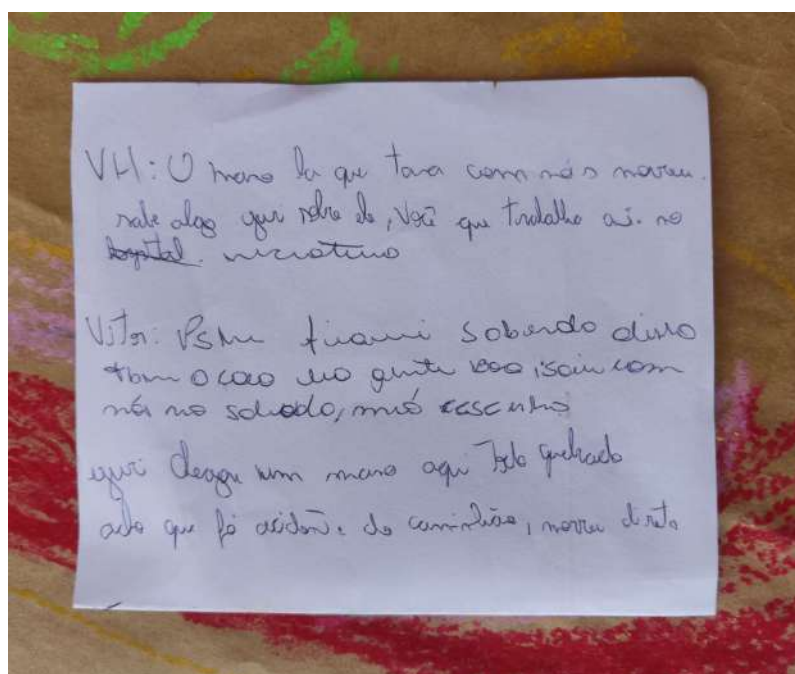 VH: O mano la que tava com nós morreu.
sabe algo que sobre ele, Você que trabalha ai no
hospital. necrotério
Vitor: PSM ficamo sabendo disso
o caso gente boa, saiu com
nós no sabado, mó
chegou um mano aqui todo quebrado
acho que fo acidente de caminhão, morreu direto